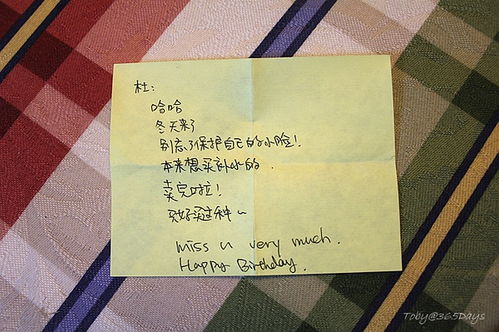 杜:
哈哈
冬天来了
别忘了保护自己的小脸!
本来想买补水的.
卖完啦!
只好买这种~
miss u very much.
Happy Birthday.
Toby@365Days